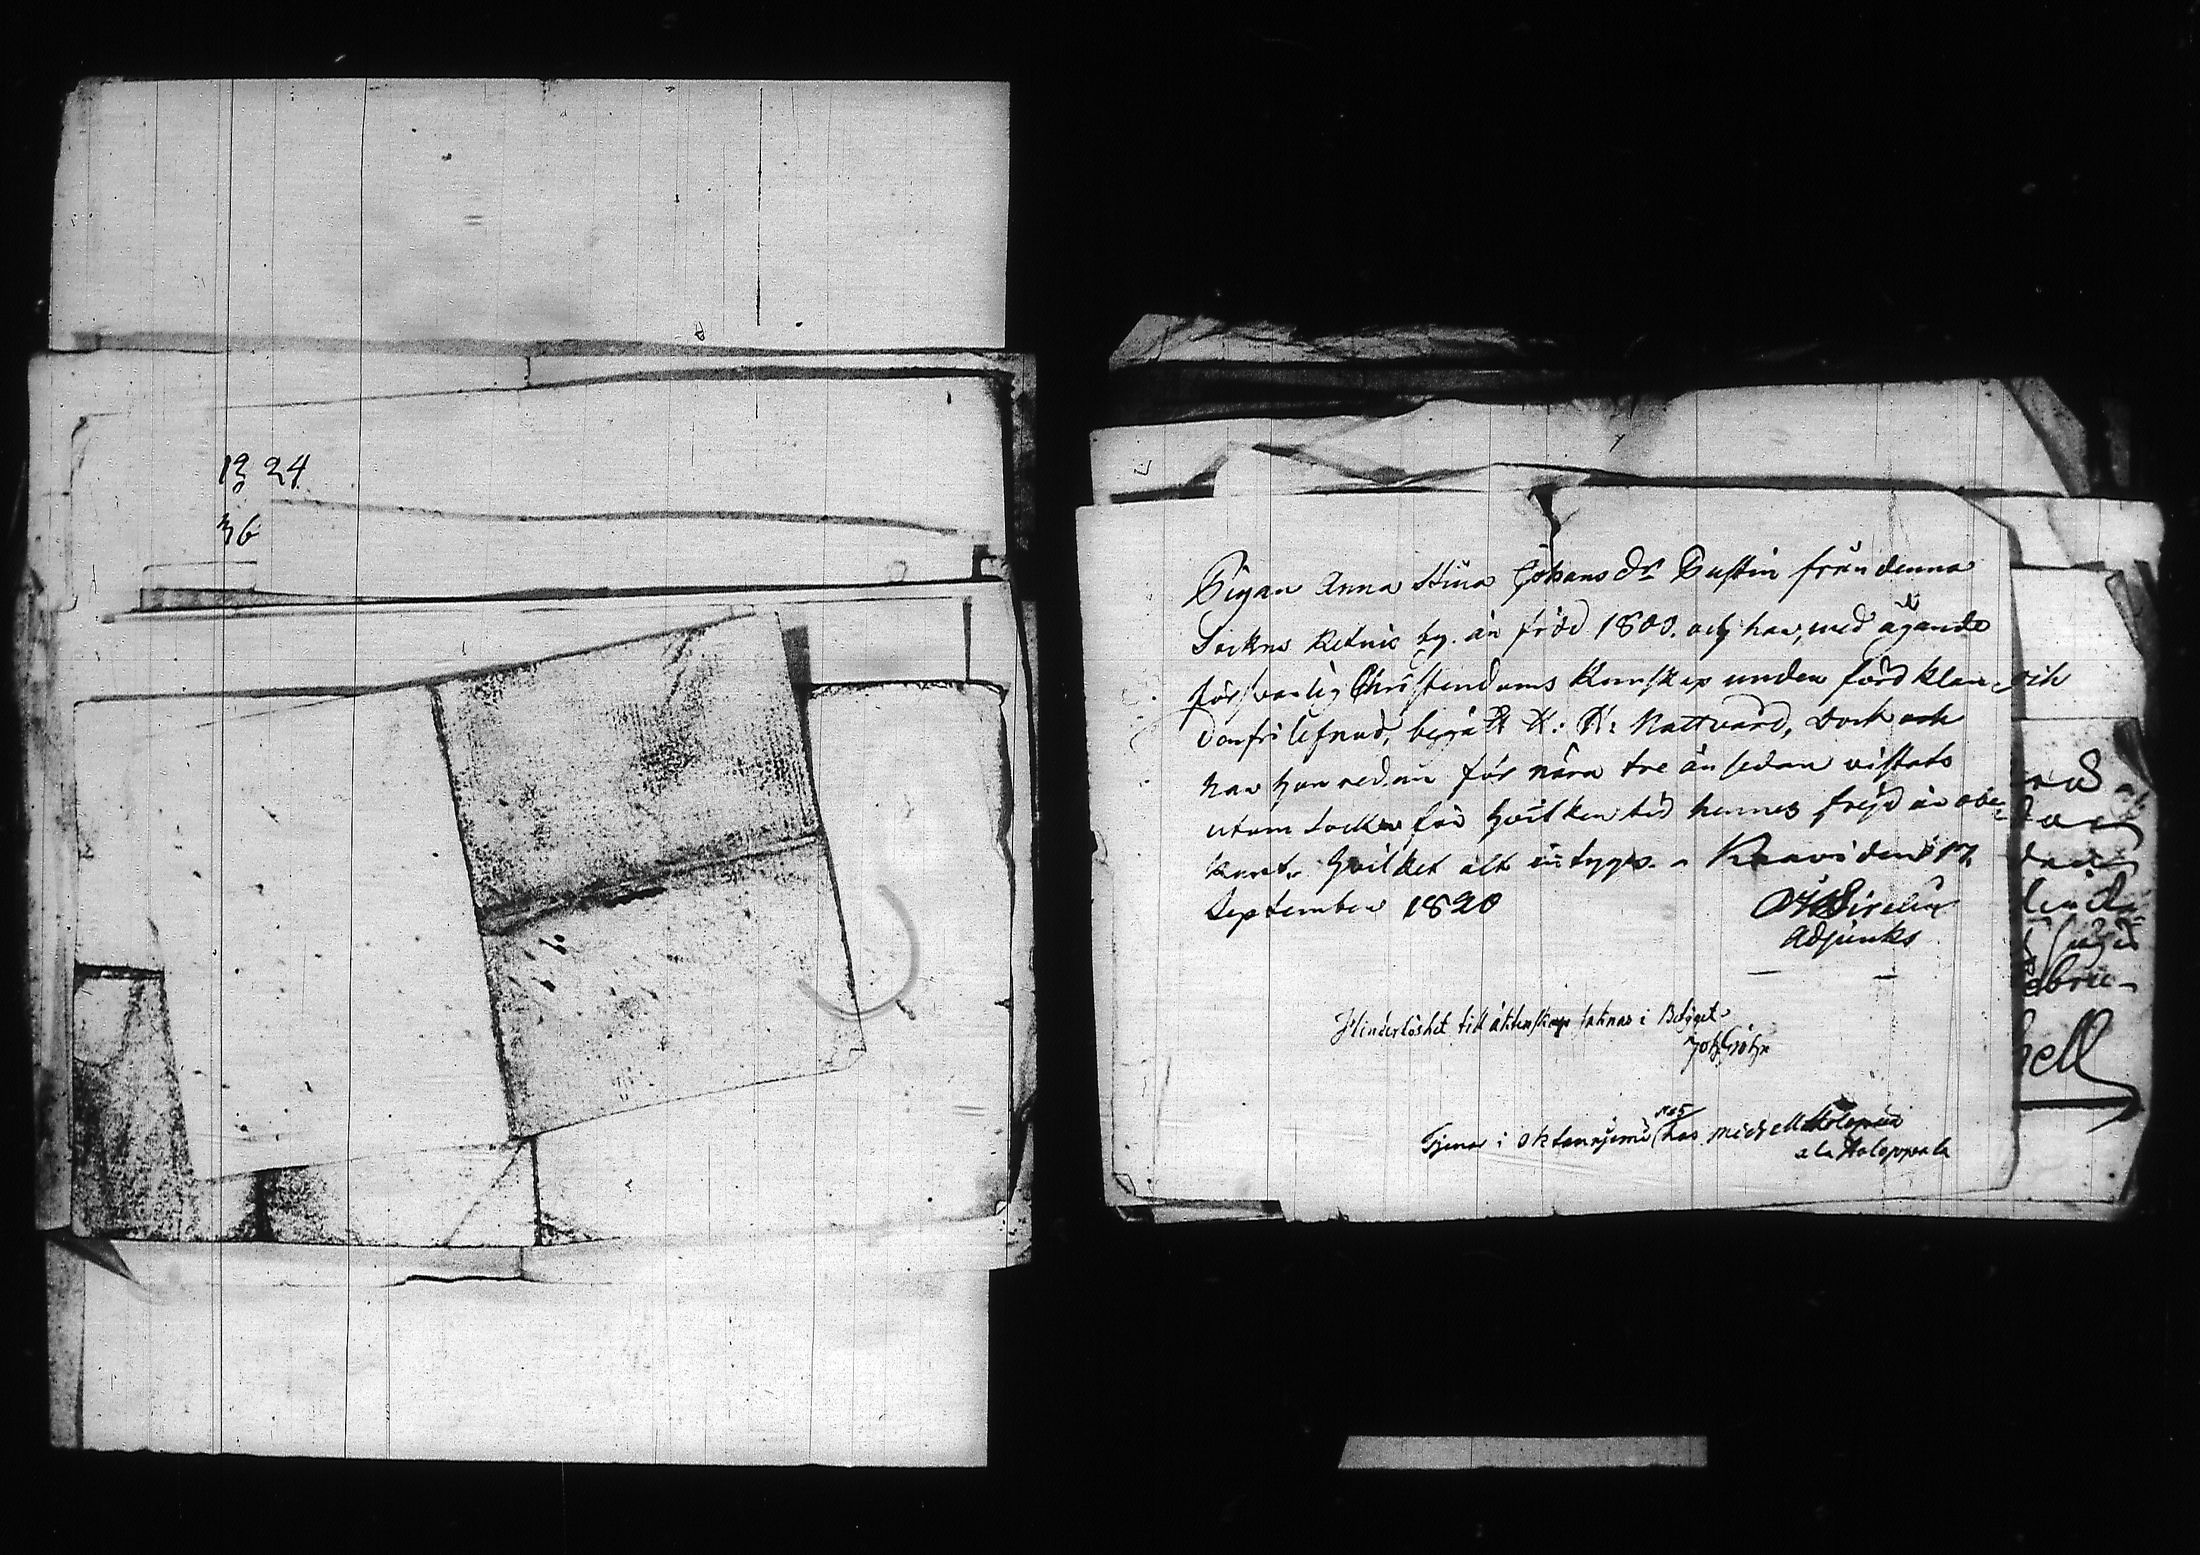 12 24
36
Pigan Anna Stina Johans dr Custin från denna
Sockns Retnis by. är född 1800. och har, med ägande
försvarlig Christendoms Kunskap under förd klan-
derfri lefnad, begått H: H: Nattvard, Dock ock
har hon redan för nära tre år sedan vistats
utom Socken för hvilken tid hennes frejd är obe-
kant. Hvilket alt intygas. Knavi den 17
September 1820
Sirelius
Adjunks
Hinderlöshet till äktenskap saknas i Betyget
Joh
Tjenar i hos Michell
ala Holoppala
och
ell